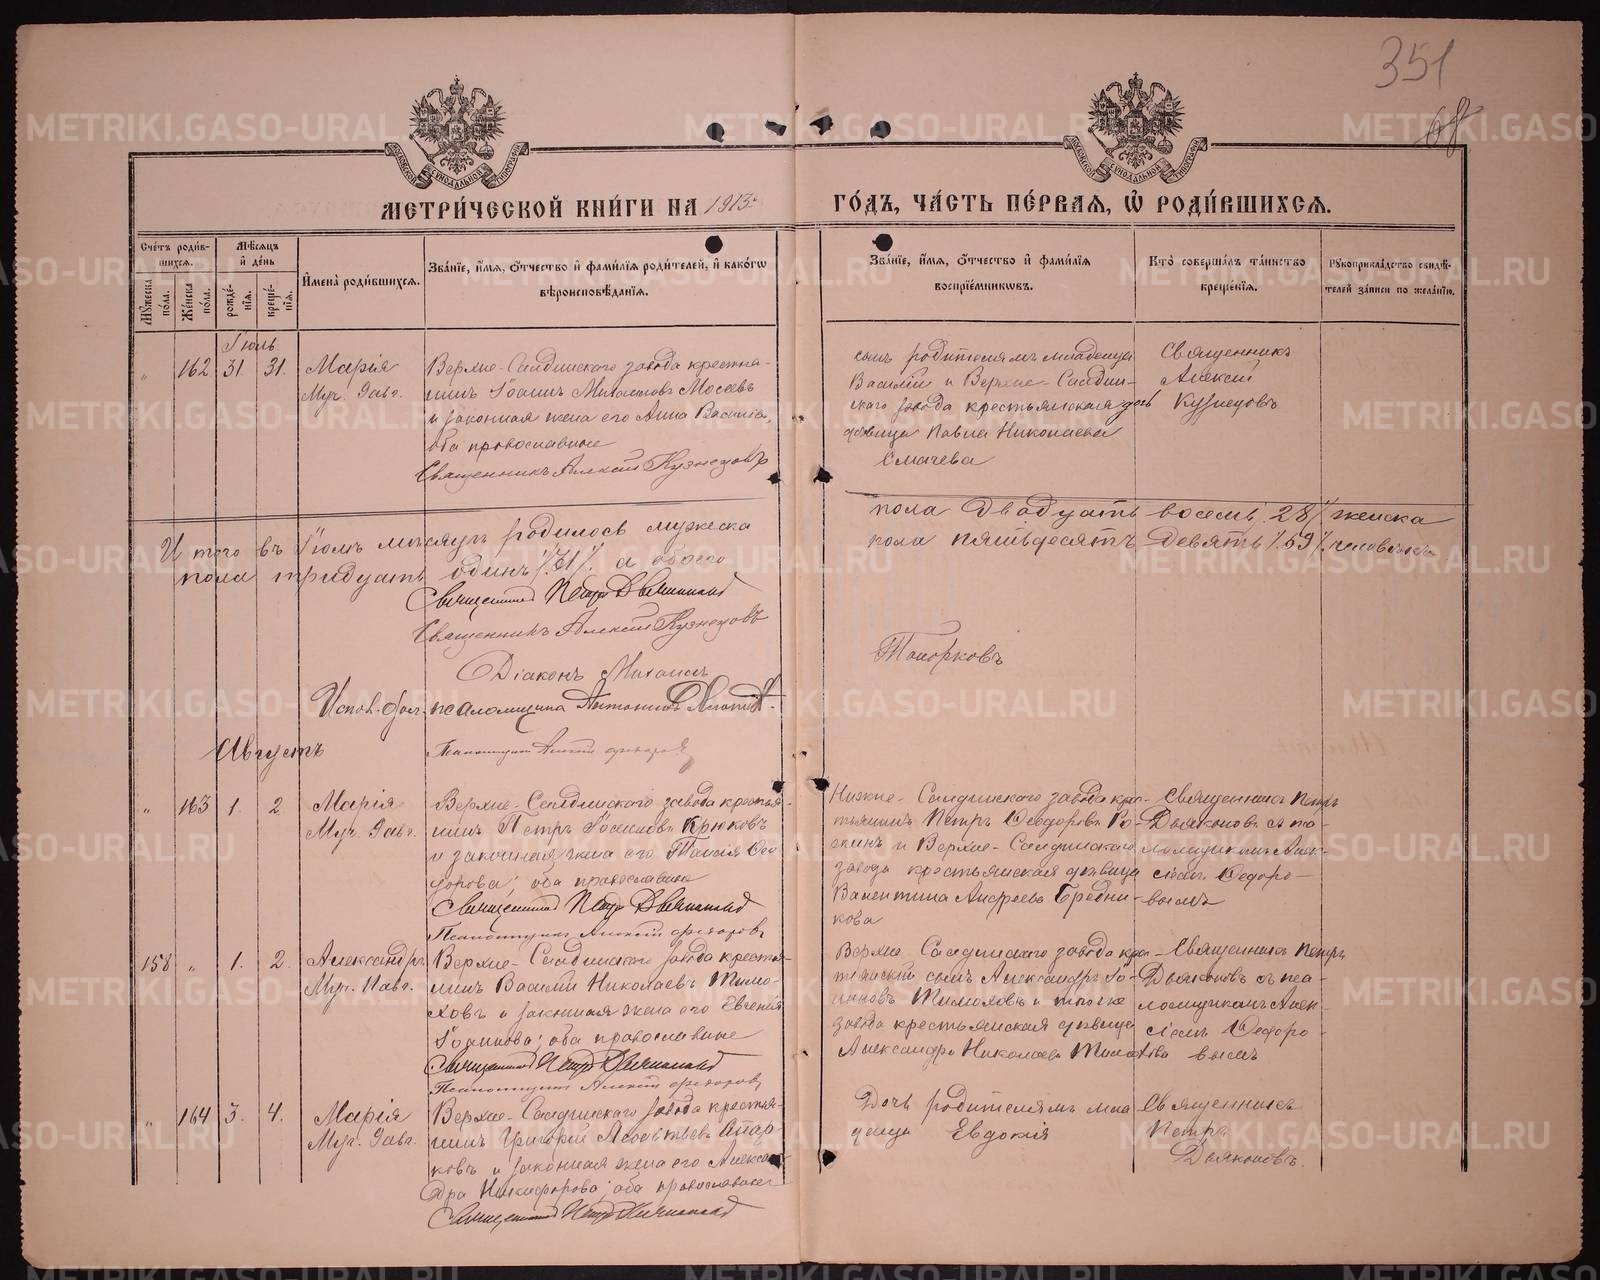 351
МЕТРИ́ЧЕСКОЙ КНИ́ГИ НА 1913 ГО́ДЪ, ЧА́СТЬ ПЕ́РВАЯ, Ѡ҆ РОДИ́ВШИХСЯ.
Сче́тъ роди́вшихся.
Мꙋ́жеска по́ла.
Же́нска по́ла.
Мѣ́сяцъ и҆ де́нь
рожде́нїя.
креще́нїя.
И҆мена̀ роди́вшихся.
Зва́нїе, и҆́мя, ѻ҆́тчество и҆ фами́лїя роди́телей, и҆ како́гѡ
вѣроисповѣ́данїя.
Зва́нїе, и҆́мя, ѻ҆́тчество и҆ фами́лїя
воспрїе́мникѡвъ.
Кто̀ соверша́лъ та́инство
креще́нїя.
Рꙋкоприкла́дство свидѣ́-
телей за́писи по жела́нїю.
Іюль
„ 162 31 31. Марія
Муч. 9 авг.
Верхне-Салдинскаго завода крестья-
нинъ Іоаннъ Михаиловъ Мосеевъ
и законная жена его Анна Васильева,
оба православные
Священникъ Алексій Кузнецовъ
сынъ родителямъ младенца
Василій и Верхне-Салдин-
скаго завода крестьянская дочь
дѣвица Павла Николаева
Смачева
Священникъ
Алексій
Кузнецовъ
Итого въ Іюлѣ мѣсяцѣ родилось мужеска
пола двадцать восемь /28/, женска
пола тридцать одинъ /31/, а обоего
пола пятьдесятъ девять /59/ человѣкъ
Священникъ Петръ Дьяконовъ
Священникъ Алексій Кузнецовъ
Діаконъ Михаилъ Топорковъ
Испол. долж. псаломщика Антонинъ
Псаломщикъ Алексій Федоровъ
Августъ
„ 163 1. 2 Марія
Муч. 9 авг.
Верхне-Салдинскаго завода крестья-
нинъ Петръ Іоакимовъ Крюковъ
и законная жена его Таисія Ѳео-
дорова; оба православные
Священникъ Петръ Дьяконовъ
Псаломщикъ Алексій Федоровъ
Нижне-Салдинскаго завода кре-
стьянинъ Петръ Ѳеодоровъ Ро-
акинъ и Верхне-Салдинскаго
завода крестьянская дѣвица
Валентина Андреева Бредни-
кова
Священникъ Петръ
Дьяконовъ съ пса-
ломщикомъ Алек-
сіемъ Ѳедоро-
вымъ
158 „ 1. 2. Александръ
Муч. 1 авг.
Верхне-Салдинскаго завода крестья-
нинъ Василій Николаевъ Тимо-
ховъ и законная жена его Евгенія
Іоакимова; оба православные
Священникъ Петръ Дьяконовъ
Псаломщикъ Алексій Федоровъ
Верхне-Салдинскаго завода кре-
стьянскій сынъ Александръ Іо-
анновъ Тимоховъ и того же
завода крестьянская дѣвица
Александра Николаева Тимохова
Священникъ Петръ
Дьяконовъ съ пса-
ломщикомъ Алек-
сіемъ Ѳедоро-
вымъ
„ 164 3. 4. Марія
Муч. 9 авг.
Верхне-Салдинскаго завода крестья-
нинъ Григорій
и законная жена его Алексан-
дра Никифорова; оба православные
Священникъ Петръ Дьяконовъ
Дочь родителямъ мла-
денца Евдокія
Священникъ
Петръ
Дьяконовъ.
METRIKI.GASO-URAL.RU